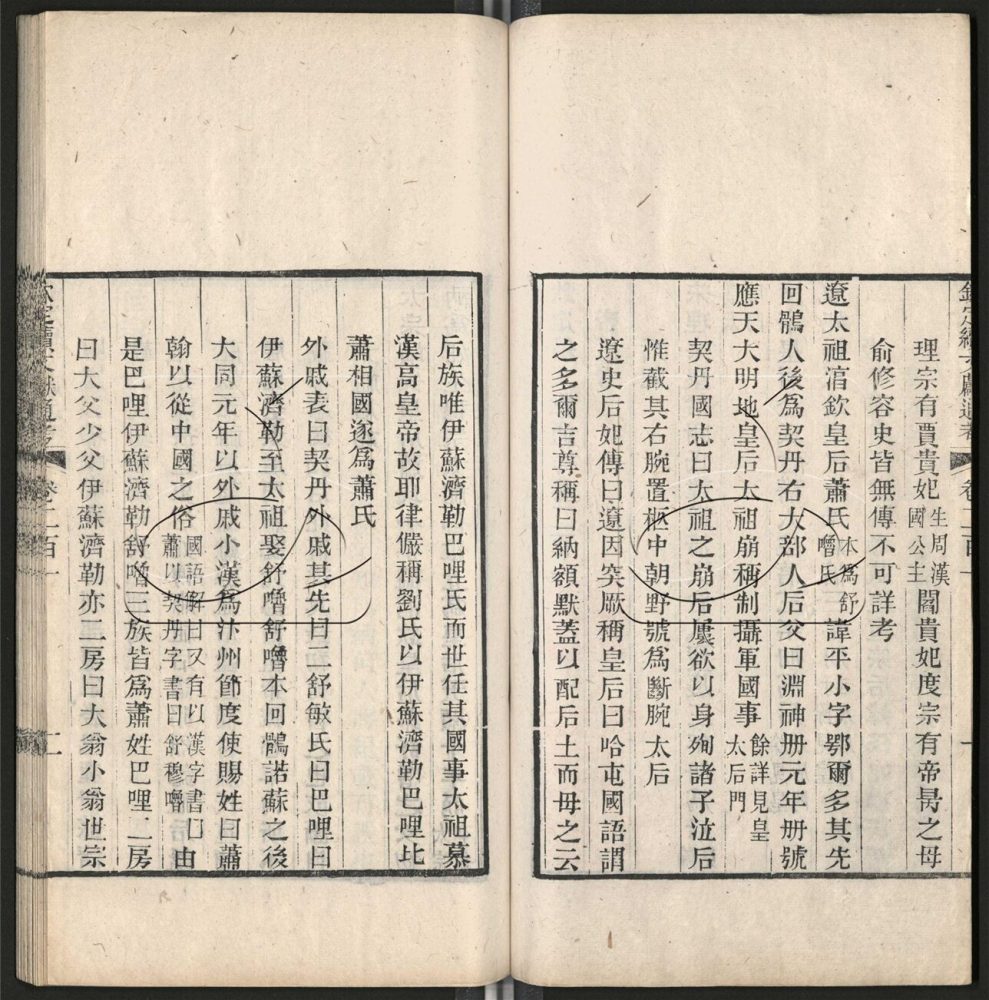 欽定續文獻通考 卷二百一 一
理宗有賈貴妃生周漢國公主閻貴妃度宗有帝㬎之母
俞修容史皆無傳不可詳考
遼太祖淳欽皇后蕭氏本爲舒嚕氏諱平小字鄂爾多其先
回鶻人後爲契丹右大部人后父曰淵神册元年册號
應天大明地皇后太祖崩稱制攝軍國事餘詳見皇太后門
契丹國志曰太祖之崩后屢欲以身殉諸子泣后
惟截其右腕置柩中朝野號爲斷腕太后
遼史后妃傳曰遼因突厥稱皇后曰哈屯國語謂
之多爾吉尊稱曰納額默蓋以配后土而母之云
后族唯伊蘇濟勒巴哩氏而世任其國事太祖慕
漢高皇帝故耶律儼稱劉氏以伊蘇濟勒巴哩比
蕭相國遂爲蕭氏
外戚表曰契丹外戚其先曰二舒敏氏曰巴哩曰
伊蘇濟勒至太祖娶舒嚕舒嚕本回鶻諾蘇之後
大同元年以外戚小漢爲汴州節度使賜姓曰蕭
翰以從中國之俗國語解曰又有以漢字書曰蕭以契丹字書曰舒穆嚕由
是巴哩伊蘇濟勒舒嚕三族皆爲蕭姓巴哩二房
曰大父少父伊蘇濟勒亦二房曰大翁小翁世宗
欽定續文獻通考 卷二百一 二